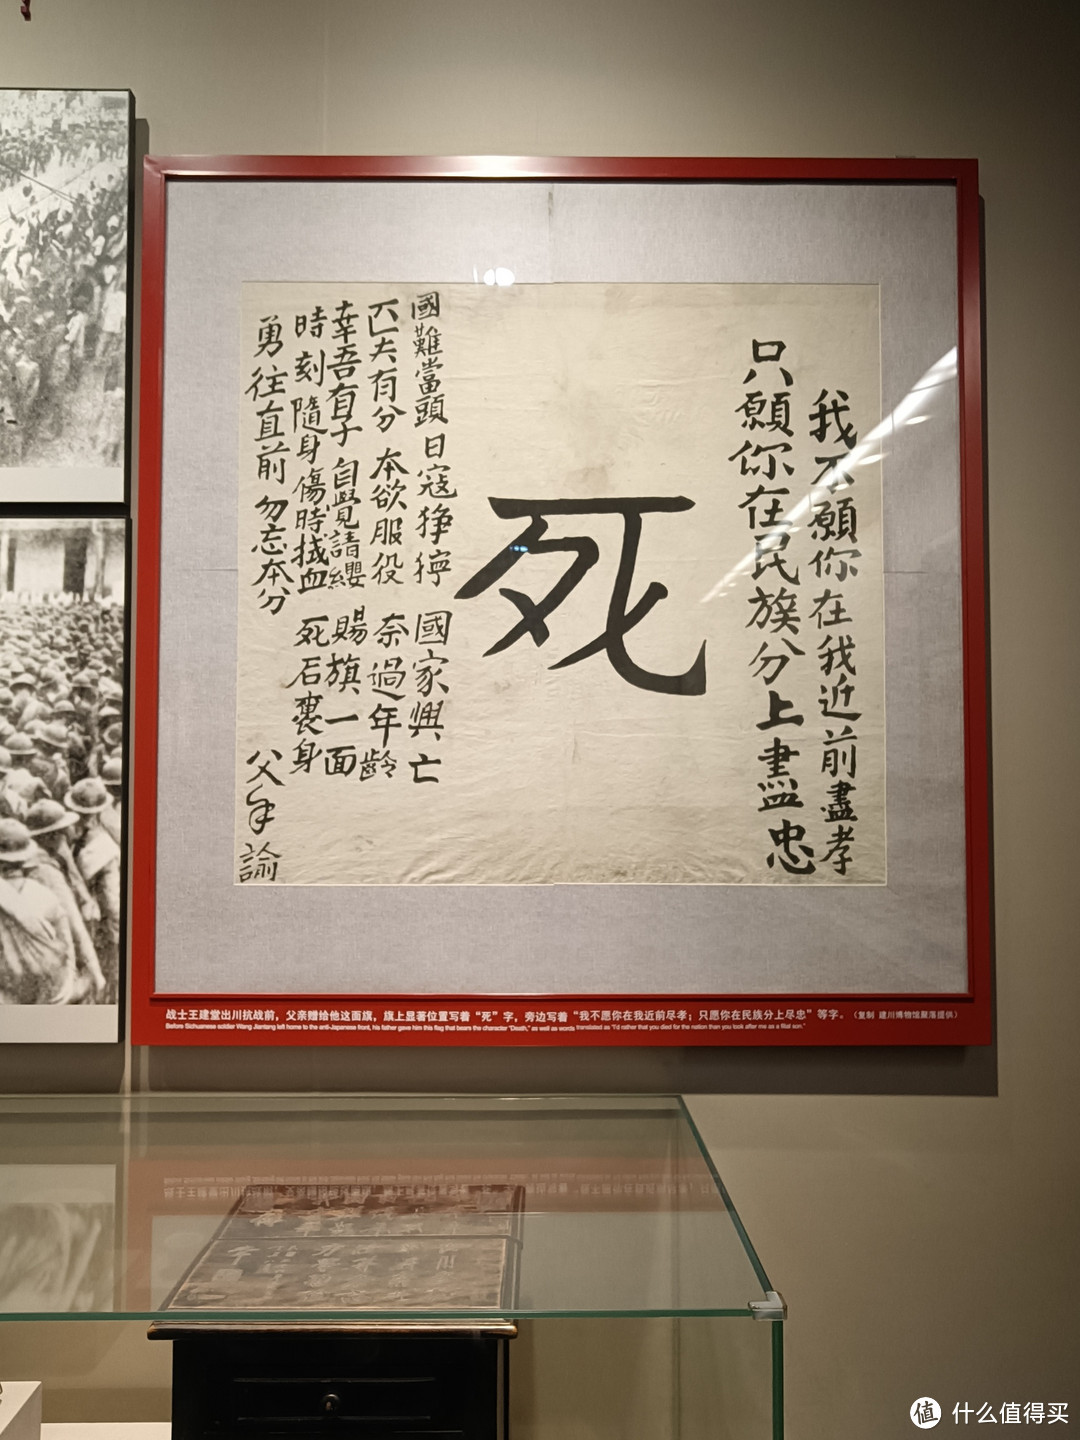 我不願你在我近前盡孝
只願你在民族分上盡忠
死
國難當頭 日寇猙獰 國家興亡
匹夫有分 本欲服役 奈過年齡
幸吾有子 自覺請纓 賜旗一面
時刻隨身 傷時拭血 死后裹身
勇往直前 勿忘本分
父手諭
战士王建堂出川抗战前，父亲赠给他这面旗，旗上显著位置写着“死”字，旁边写着“我不愿你在我近前尽孝；只愿你在民族分上尽忠”等字。（复制 建川博物馆聚落提供）
Before Sichuanese soldier Wang Jiantang left home to the anti-Japanese front, his father gave him this flag that bears the character "Death," as well as words translated as "I'd rather that you died for the nation than you took after me as a filial son."
值 什么值得买